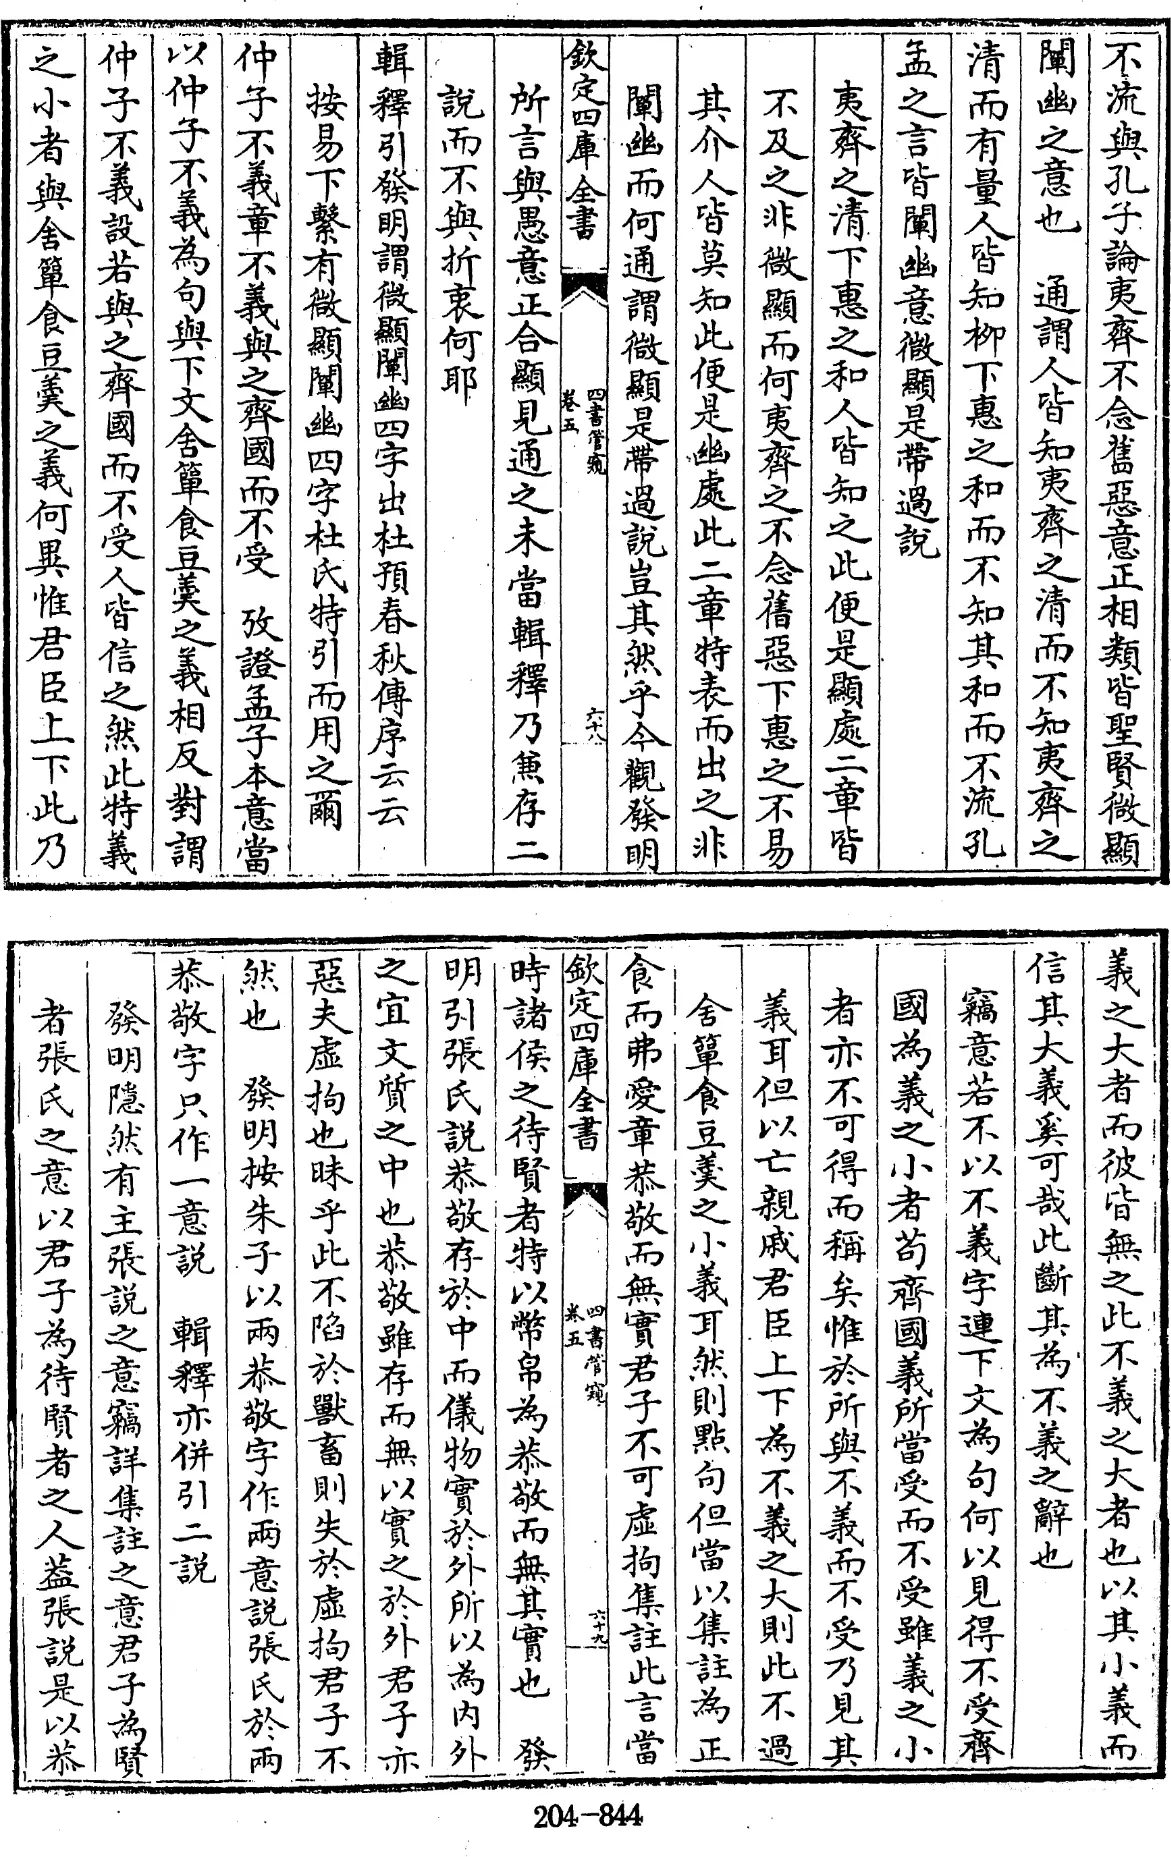 不流與孔子論夷齊不念舊惡意正相類皆聖賢微顯
闡幽之意也　通謂人皆知夷齊之清而不知夷齊之
清而有量人皆知柳下惠之和而不知其和而不流孔
孟之言皆闡幽意微顯是帶過說
夷齊之清下惠之和人皆知之此便是顯處二章皆
不及之非微顯而何夷齊之不念舊惡下惠之不易
其介人皆莫知此便是幽處此二章特表而出之非
闡幽而何通謂微顯是帶過說豈其然乎今觀發明
欽定四庫全書
四書管窺
卷五
六十八
所言與愚意正合顯見通之未當輯釋乃兼存二
說而不與折衷何耶
輯釋引發明謂微顯闡幽四字出杜預春秋傳序云云
按易下繫有微顯闡幽四字杜氏特引而用之爾
仲子不義章不義與之齊國而不受　攷證孟子本意當
以仲子不義為句與下文舍簞食豆羹之義相反對謂
仲子不義設若與之齊國而不受人皆信之然此特義
之小者與舍簞食豆羹之義何異惟君臣上下此乃
義之大者而彼皆無之此不義之大者也以其小義而
信其大義奚可哉此斷其為不義之辭也
竊意若不以不義字連下文為句何以見得不受齊
國為義之小者茍齊國義所當受而不受雖義之小
者亦不可得而稱矣惟於所與不義而不受乃見其
義耳但以亡親戚君臣上下為不義之大則此不過
舍簞食豆羹之小義耳然則點句但當以集註為正
食而弗愛章恭敬而無實君子不可虛拘集註此言當
欽定四庫全書
四書管窺
卷五
六十九
時諸侯之待賢者特以幣帛為恭敬而無其實也　發
明引張氏說恭敬存於中而儀物實於外所以為內外
之宜文質之中也恭敬雖存而無以實之於外君子亦
惡夫虛拘也昧乎此不陷於獸畜則失於虛拘君子不
然也　發明按朱子以兩恭敬字作兩意說張氏於兩
恭敬字只作一意說　輯釋亦併引二說
發明隱然有主張說之意竊詳集註之意君子為賢
者張氏之意以君子為待賢者之人葢張說是以恭
204-844